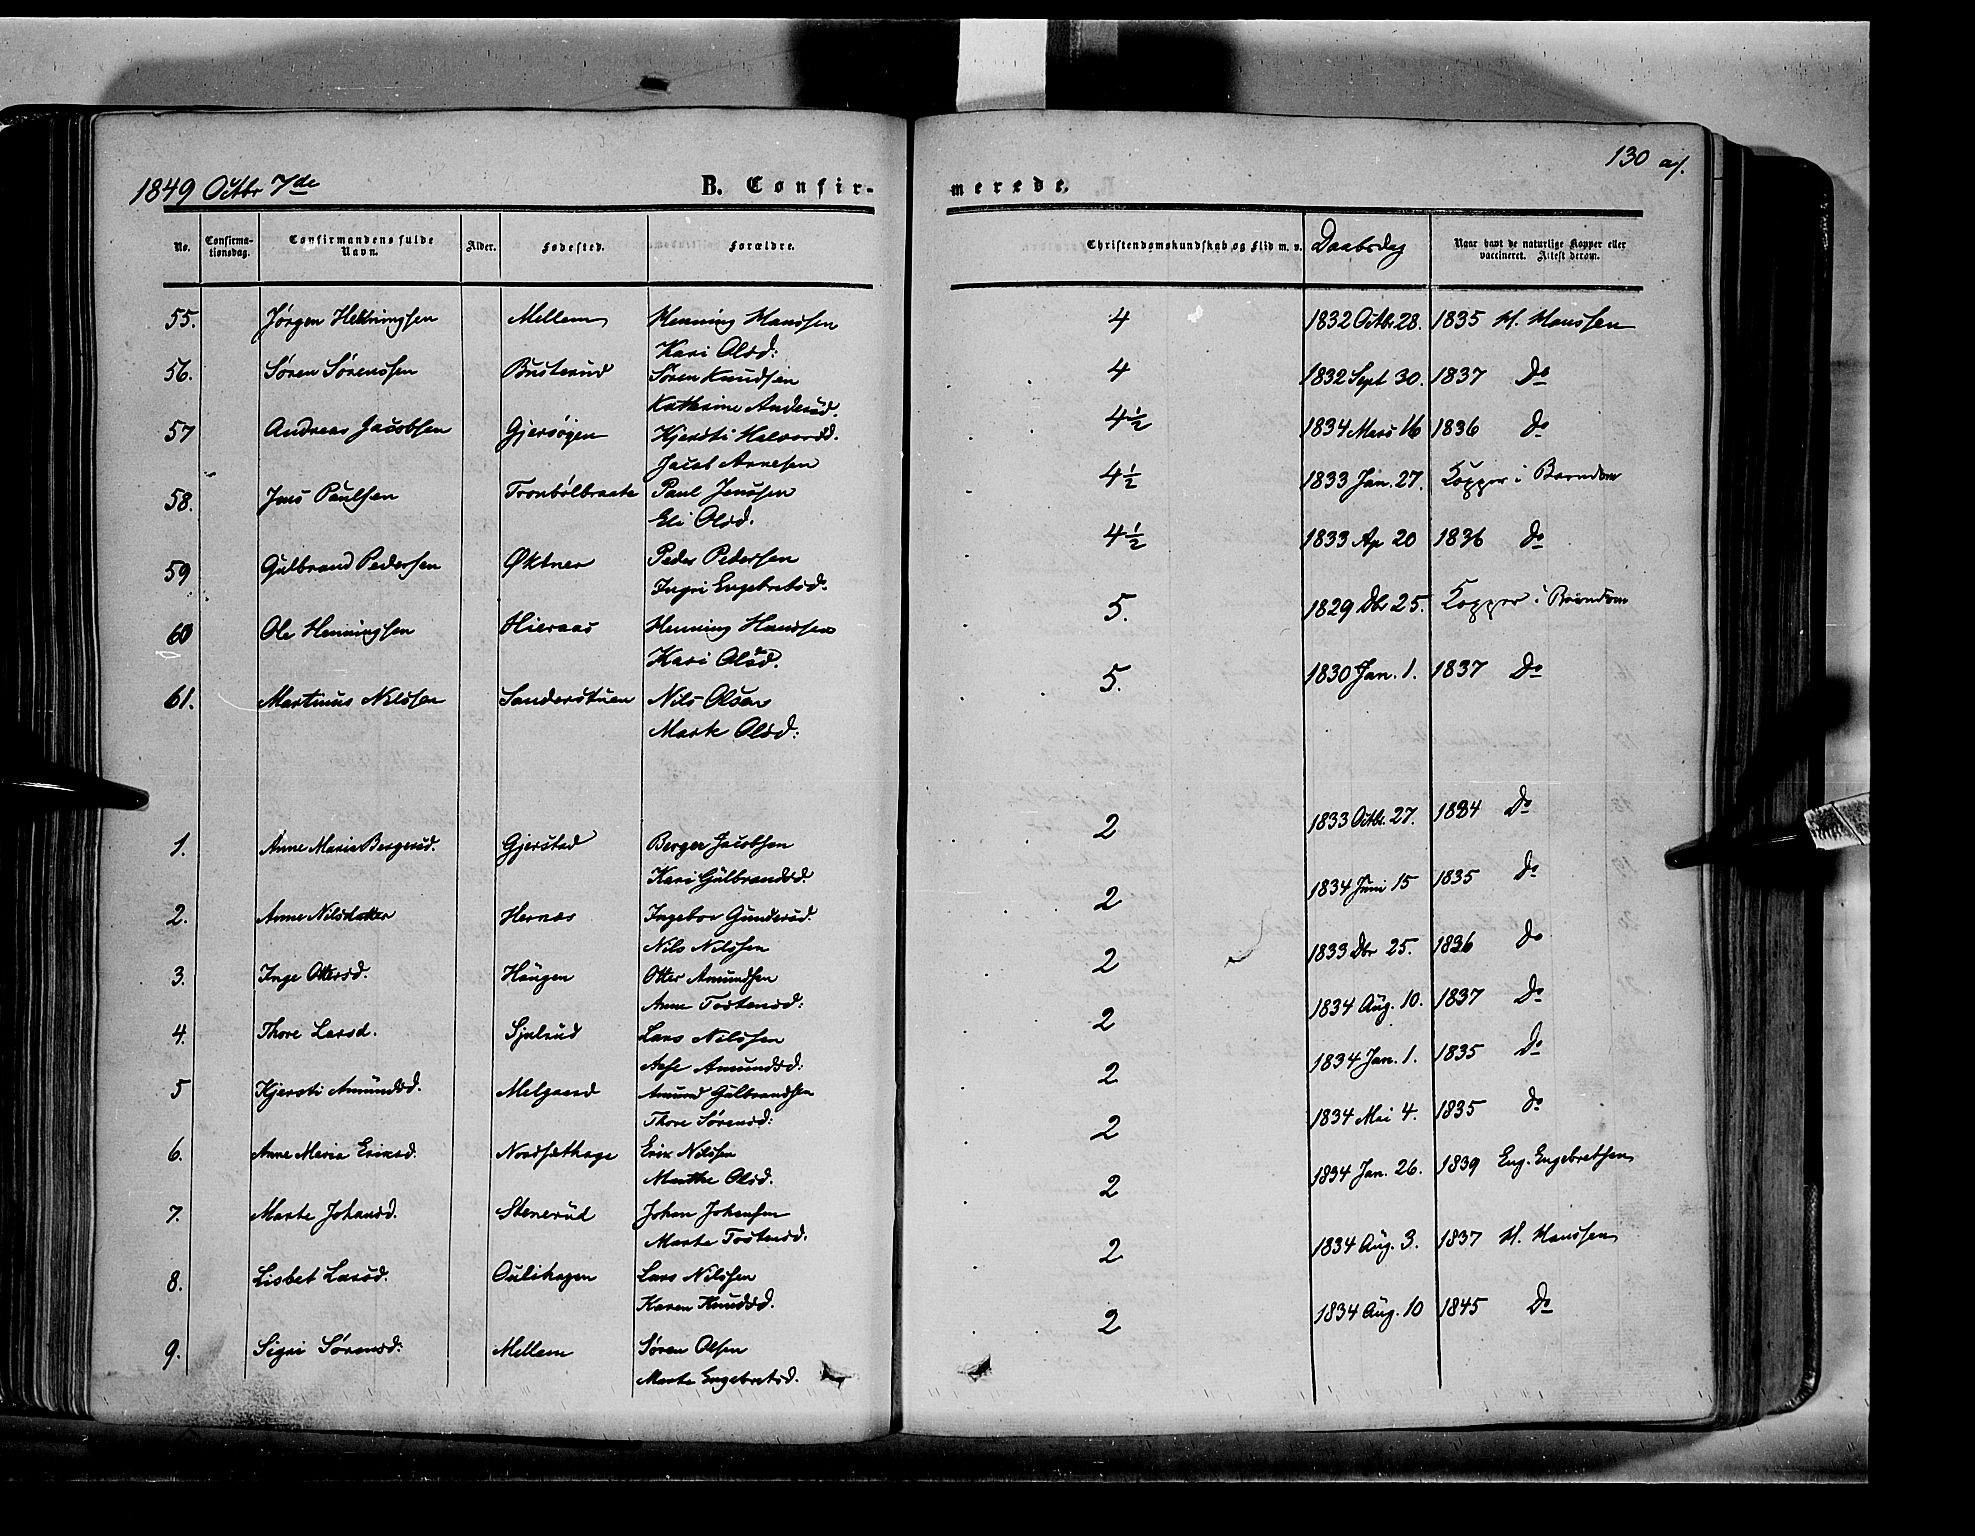 130 a/.
1849 Octbr 7de B. Confir- merede.
No. Confirmationsdag. Confirmandens fulde Navn. Alder. Fødested. Forældre. Christendomskundskab og Flid m. v. Daabsdag Naar havt de naturlige Kopper eller vaccineret. Attest derom.
55. Jørgen Henningsen Mellem Henning Hanssen 4 1832 Octbr 28. 1835 H. Hanssen
Kari Olsd:
56. Søren Sørenssen Busterud Søren Knudsen 4 1832 Sept 30. 1837 Do
Kathrine Andersd.
57 Andreas Jacobsen Gjersøgen Kjersti Halvorsd. 4½ 1834 Mars 16 1836 Do
Jacob Arnesen
58. Jens Paulsen Tronbølbraate Paul Jenssen 4½ 1833 Jan. 27. Kopper i Barndom
Eli Olsd.
59 Gulbrand Pedersen Øktner Peder Pedersen 4½ 1833 Ap 20 1836 Do
Ingri Engebretsd.
60 Ole Henningsen Hieraas Henning Hanssen 5. 1829 Dbr 25. Kopper i Barndom
Kari Olsd.
61. Martinus Nilssen Sanderstuen Nils Olsen 5. 1830 Jan. 1. 1837 Do
Marte Olsd:
1. Anne Marie Bergersd. Gjerstad Berger Jacobsen 2 1833 Octbr. 27. 1834 Do
Kari Gulbrandsd.
2. Anne Nilsdatter Hernæs Ingebor Gundersd. 2 1834 Juni 15 1835 Do
Nils Nilssen
3. Inge Ottersd. Haugen Otter Amundsen 2 1833 Dbr 25. 1836 Do
Anne Tostensd:
4. Thore Larsd. Sjulsud Lars Nilssen 2 1834 Aug. 10. 1837 Do
Aase Amundsd:
5 Kjersti Amundsd. Melgaard Amund Gulbrandsen 2 1834 Jan. 1. 1835 Do
Thore Sørensd:
6. Anne Maria Eriksd. Nordsæthage Erik Nilssen 2 1834 Mai 4. 1835 Do
Marthe Olsd.
7. Marte Johansd. Stenerud Johan Johansen 2 1834 Jan. 26. 1839 Eng. Engebretsen
Marte Tostensd.
8. Lisbet Larsd. Oulihagen Lars Nilssen 2 1834 Aug. 3. 1837 H. Hanssen
Karen Knudsd.
9. Sigri Sørensd: Mellem Søren Olsen 2 1834 Aug. 10 1845 Do
Marte Engebretsd.